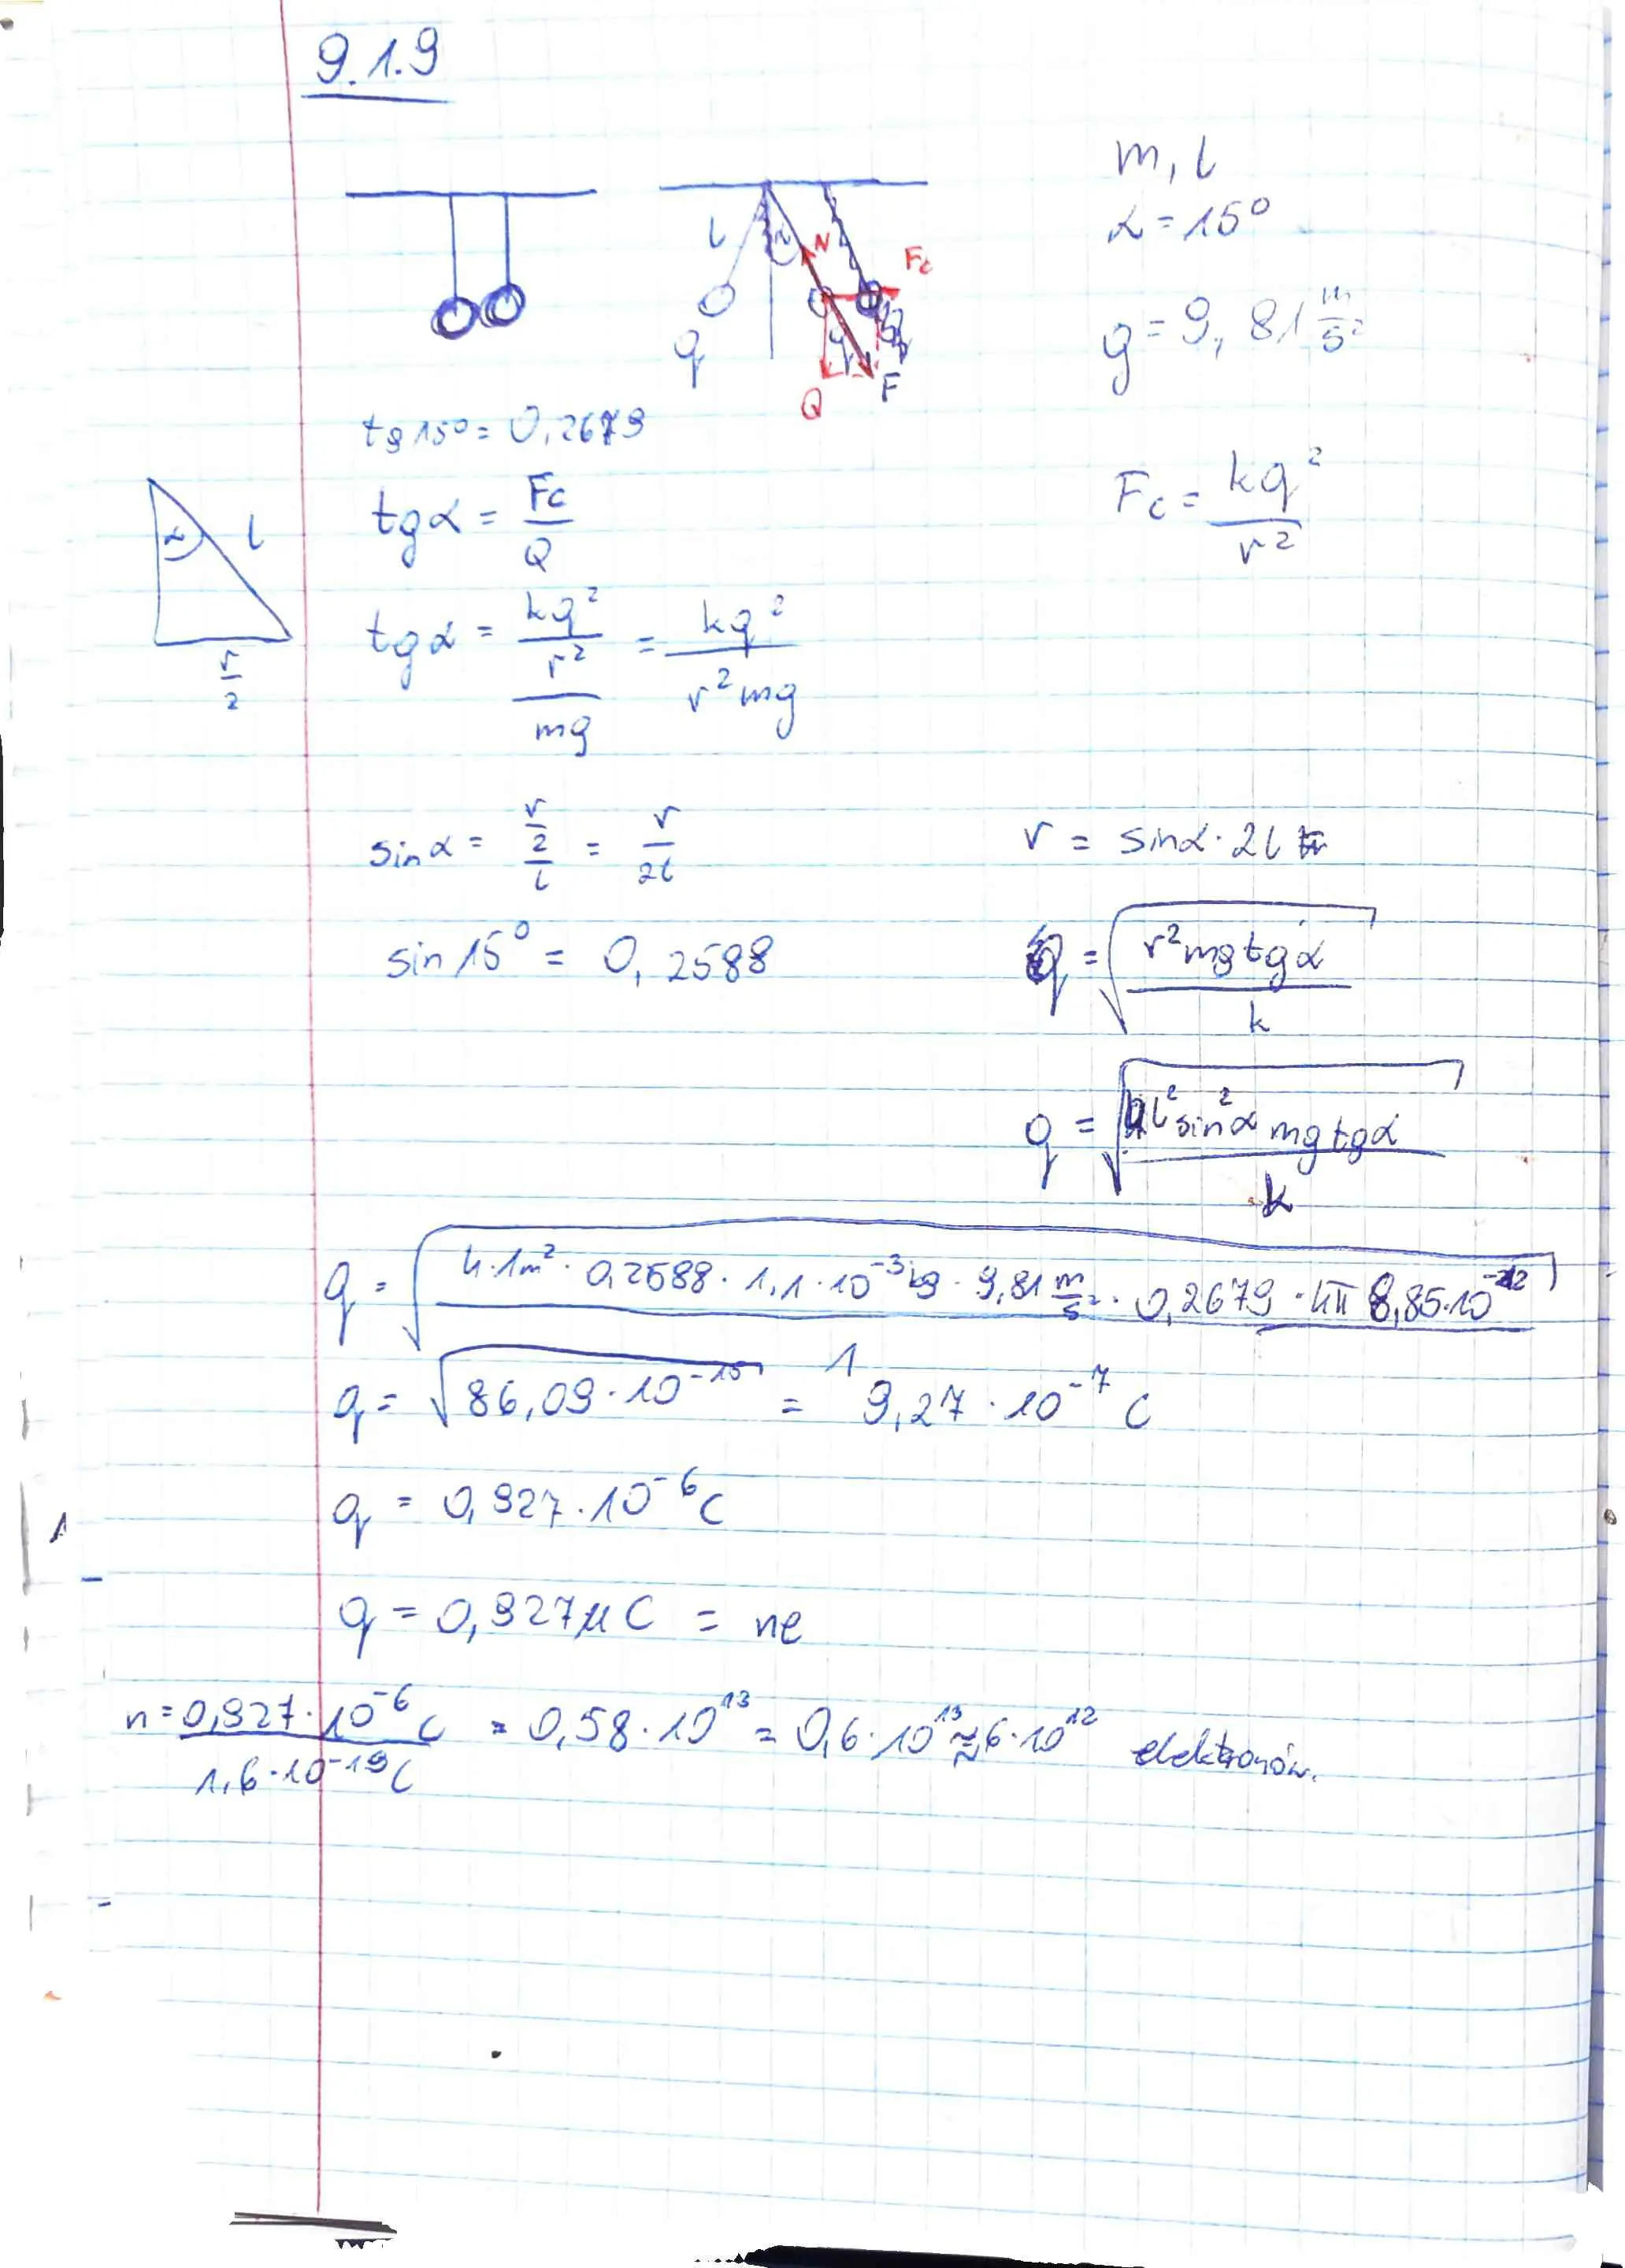 9.1.9
m, l
α = 15°
g = 9,81 m/s²
l
α
N
Fc
q
Q
F
tg 15° = 0,2679
tg α = Fc / Q
Fc = kq² / r²
α
l
r/2
tg α = (kq² / r²) / mg = kq² / r²mg
sin α = (r/2) / l = r / 2l
r = sin α · 2l
sin 15° = 0,2588
q = √(r² mg tg α / k)
q = √(4l² sin² α mg tg α / k)
q = √(4 · 1m² · 0,2588 · 1,1 · 10⁻³ kg · 9,81 m/s² · 0,2679 · 4π 8,85 · 10⁻¹²)
1
q = √(86,09 · 10⁻¹⁵) = 9,27 · 10⁻⁷ C
q = 0,927 · 10⁻⁶ C
q = 0,927 μC = ne
n = 0,927 · 10⁻⁶ C / 1,6 · 10⁻¹⁹ C = 0,58 · 10¹³ = 0,6 · 10¹³ ≈ 6 · 10¹² elektronów.